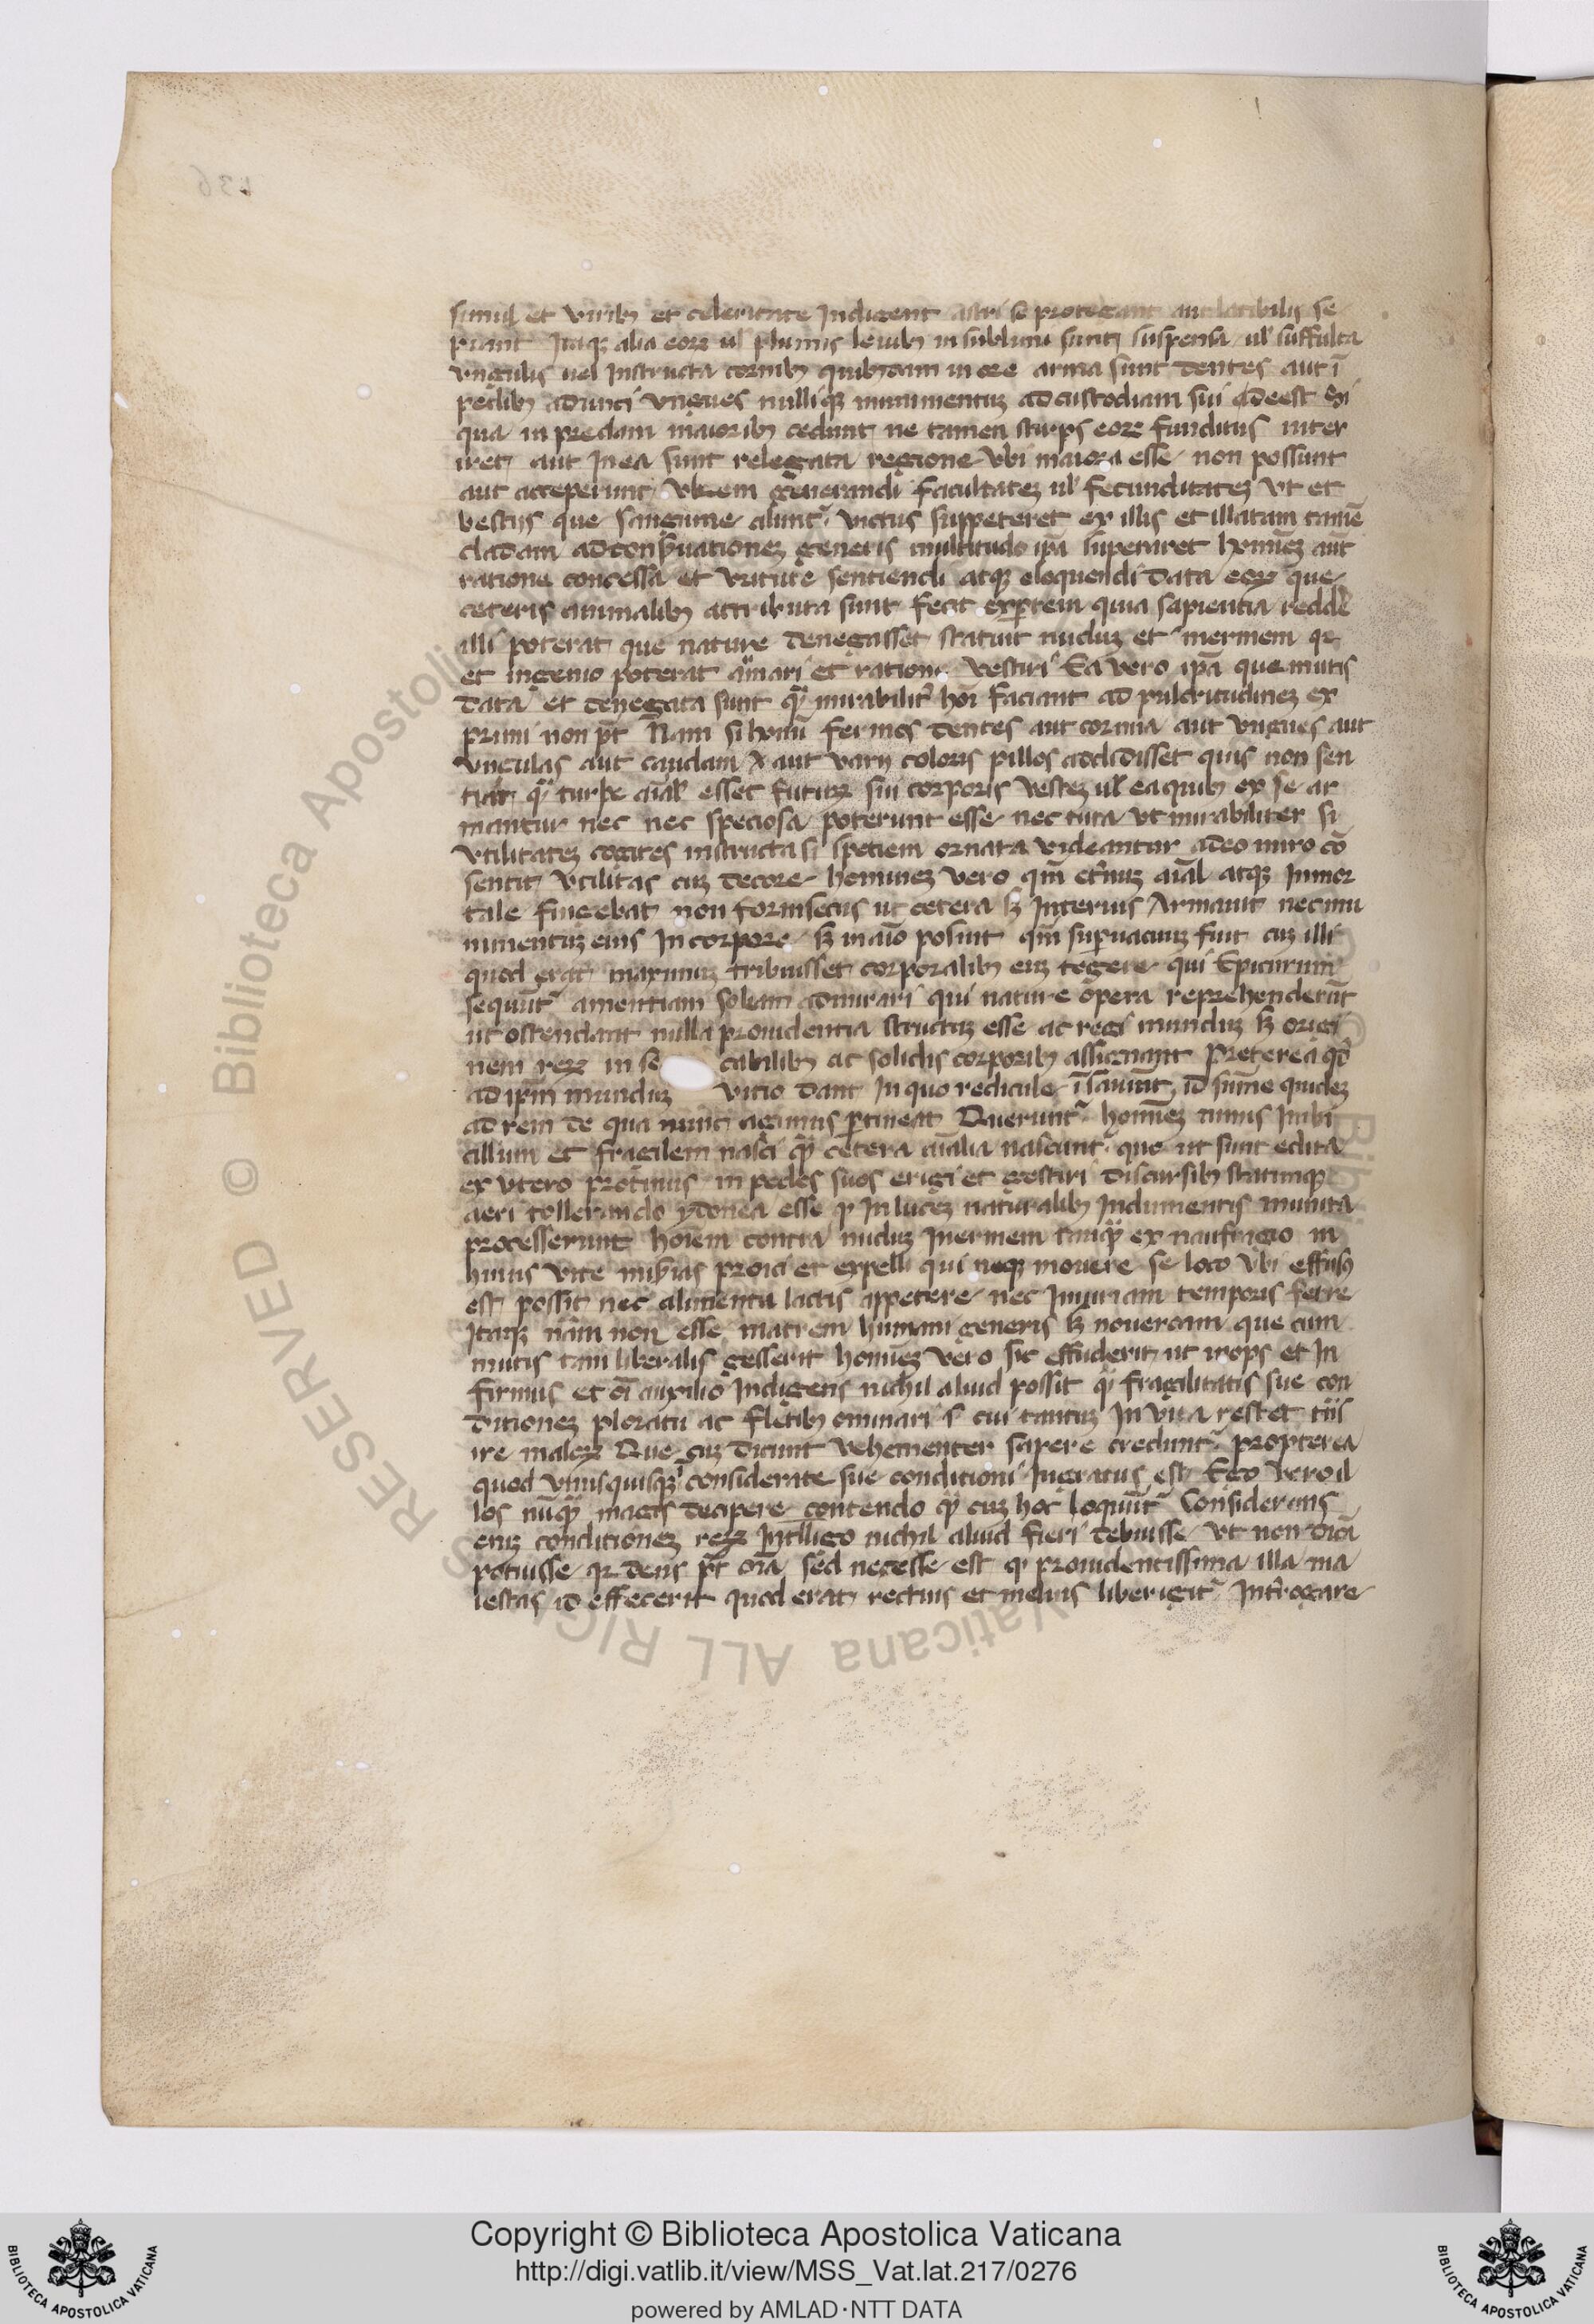 simul et virib; et celeritate Indigent astu se protegant aut latibilis se
piant Itaq; alia eoꝝ ul' plumis leuib; in sublimi sunt suspensa ul' suffulta
vngulis uel Instructa cornib; quib;dam in ore arma sunt dentes aut ī
pedib; adunci vngues nulliq; munimentuꝫ ad custodiam sui deest
qua in predam maiorib; cedunt ne tamen stirps eoꝝ funditus inter
iret aut In ea sunt relegata regione vbi maiora esse non possunt
aut acceperunt vbrem generandi facultateꝫ ul' fecunditateꝫ vt et
bestijs que sanguine alunt᷑ victus suppeteret ex illis et illatam tamē
cladam ad conẜuationeꝫ generis multitudo ip̄a superaret homineꝫ aut̄
ratione concessa et virtute sentiendi atq; eloquendi data eoꝝ que
ceteris animalib; attributa sunt fecit exꝑtem quia sapientia redde᷑
illi poterat que nature denegasset statuit nuduꝫ et inermem qꝛ
et ingenio poterat armari et ratione vestiri Ea vero ip̄a que mutis
data et denegata sunt qͣ mirabilit᷑ hoī faciant ad pulcritudineꝫ ex
primi non pt̄ Nam si homī ferinos dentes aut cornua aut vngues aut
vngulas aut caudam aut varij coloris pillos addidisset quis non sen
tiat qͣ turpe aīal' esset futuꝝ sui corporis vesteꝫ ul' ea quib; ex se ar
mantur nec nec speciosa poterunt esse nec tuta vt mirabiliter si
vtilitateꝫ cogites instructa si spetiem ornata videantur adeo miro cō
sentit vtilitas cuꝫ decore homineꝫ vero qm̄ et᷑nuꝫ aīal atq; Inmor
tale fingebat non forinsecus ut cetera sꝫ Interius Armauit nec mu
nimentuꝫ eius In corpore sꝫ in aīo posuit qm̄ suꝑuacuuꝫ fuit cuꝫ illi
quod erat maximuꝫ tribuisset corporalib; euꝫ tegere qui Epicurum
sequūt᷑ amentiam soleam admirari qui nature opera reprehenderūt
ut ostendant nulla prouidentia structuꝫ esse ac regi munduꝫ sꝫ origi
nem reꝝ in se cabilib; ac solidis corporib; assignant Preterea qd̄
ad ip̄m munduꝫ vitio dant In quo redicule ī sauiūt id sume quideꝫ
ad rem de qua nunc agimus ꝑtineat Queruntᷣ homineꝫ nimis Imbe
cillum et fragilem nasci qͣ cetera aīalia nascunt᷑ que ut sunt edita
ex vtero protinus in pedes suos erigi et gestiri discursib; statimq;
aeri tollerando ydonea esse ꝙ In luceꝫ naturalib; Indumentis munita
processerunt hoīem contra nuduꝫ Inermem tanqͣ ex naufragio in
huius vite miẜias proici et expelli qui neq; mouere se loco vbi effuſꝰ
est possit nec alimenta lactis appetere nec Iniuriam temporis ferre
Itaq; nām non esse matrem humani generis sꝫ nouercam que cum
mutis tam liberalis gesserit homineꝫ vero sic effuderit ut inops et In
firmus et oī auxilio Indigens nichil aliud possit qͣ fragilitatis sue con
ditioneꝫ ploratu ac fletib; ominari s cui tantuꝫ In vita restet tn̄s
ire maloꝝ Que cuꝫ dicunt vehementer sapere creduntᷣ propterea
quod vnusquisq; considerate sue conditioni Ingratus est Ego vero il
los nūqͣ magis decipere contendo qͣ cuꝫ hoc loqunt᷑ Considerans
eniꝫ conditioneꝫ reꝝ Intelligo nichil aliud fieri debuisse vt non dicā
potuisse qꝛ deus pt̄ oīa sed necesse est ꝙ prouidentissima illa ma
iestas id effecerit quod erat rectius et melius liber igit᷑ Int᷑rogare
Copyright © Biblioteca Apostolica Vaticana
http://digi.vatlib.it/view/MSS_Vat.lat.217/0276
powered by AMLAD·NTT DATA